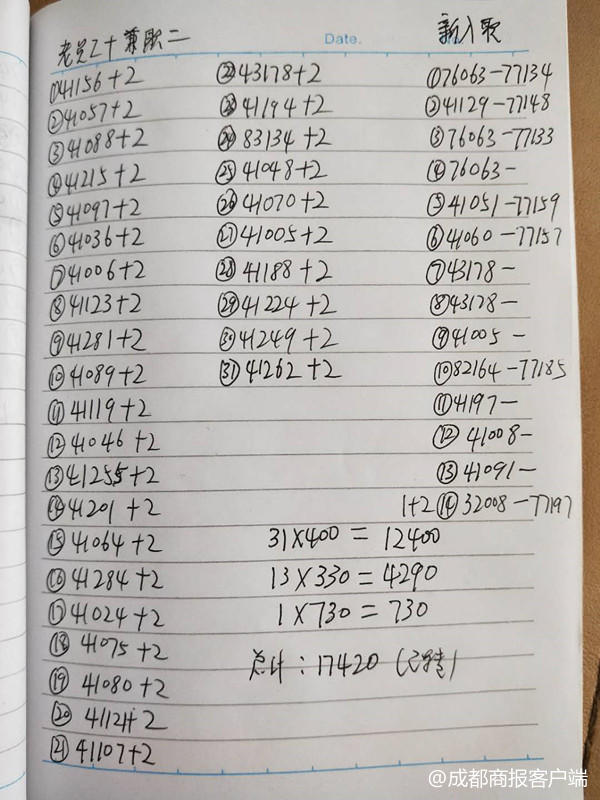 老吴27+兼职二
①41156+2
②41057+2
③41088+2
④41215+2
⑤41097+2
⑥41036+2
⑦41006+2
⑧41123+2
⑨41281+2
⑩41089+2
⑪41119+2
⑫41046+2
⑬41255+2
⑭41201+2
⑮41064+2
⑯41284+2
⑰41024+2
⑱41075+2
⑲41080+2
⑳41124+2
㉑41107+2
Date.
㉒43178+2
㉓41194+2
㉔83134+2
㉕41048+2
㉖41070+2
㉗41005+2
㉘41188+2
㉙41224+2
㉚41249+2
㉛41262+2
新入职
①76063-77134
②41129-77148
③76063-77133
④76063-
⑤41051-77159
⑥41060-77157
⑦43178-
⑧43178-
⑨41005-
⑩82164-77185
⑪41197-
⑫41008-
⑬41091-
1+2⑭32008-77197
31×400=12400
13×330=4290
1×730=730
总计:17420
@成都商报客户端